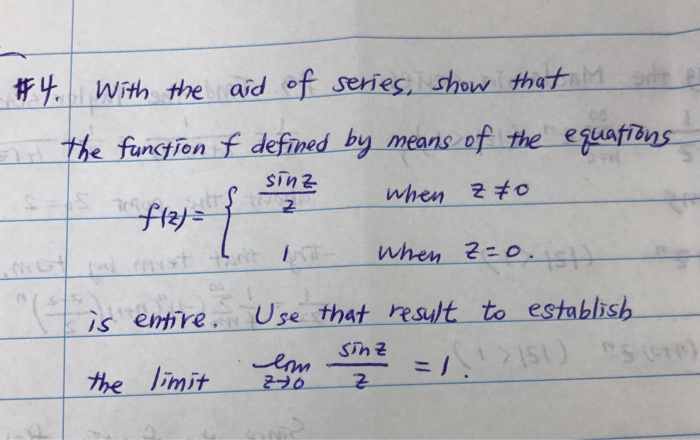 #4. With the aid of series, show that
the function f defined by means of the equations
f(z) = { sin z / z when z ≠ 0
1 when z = 0.
is entire. Use that result to establish
the limit lim z→0 sin z / z = 1.